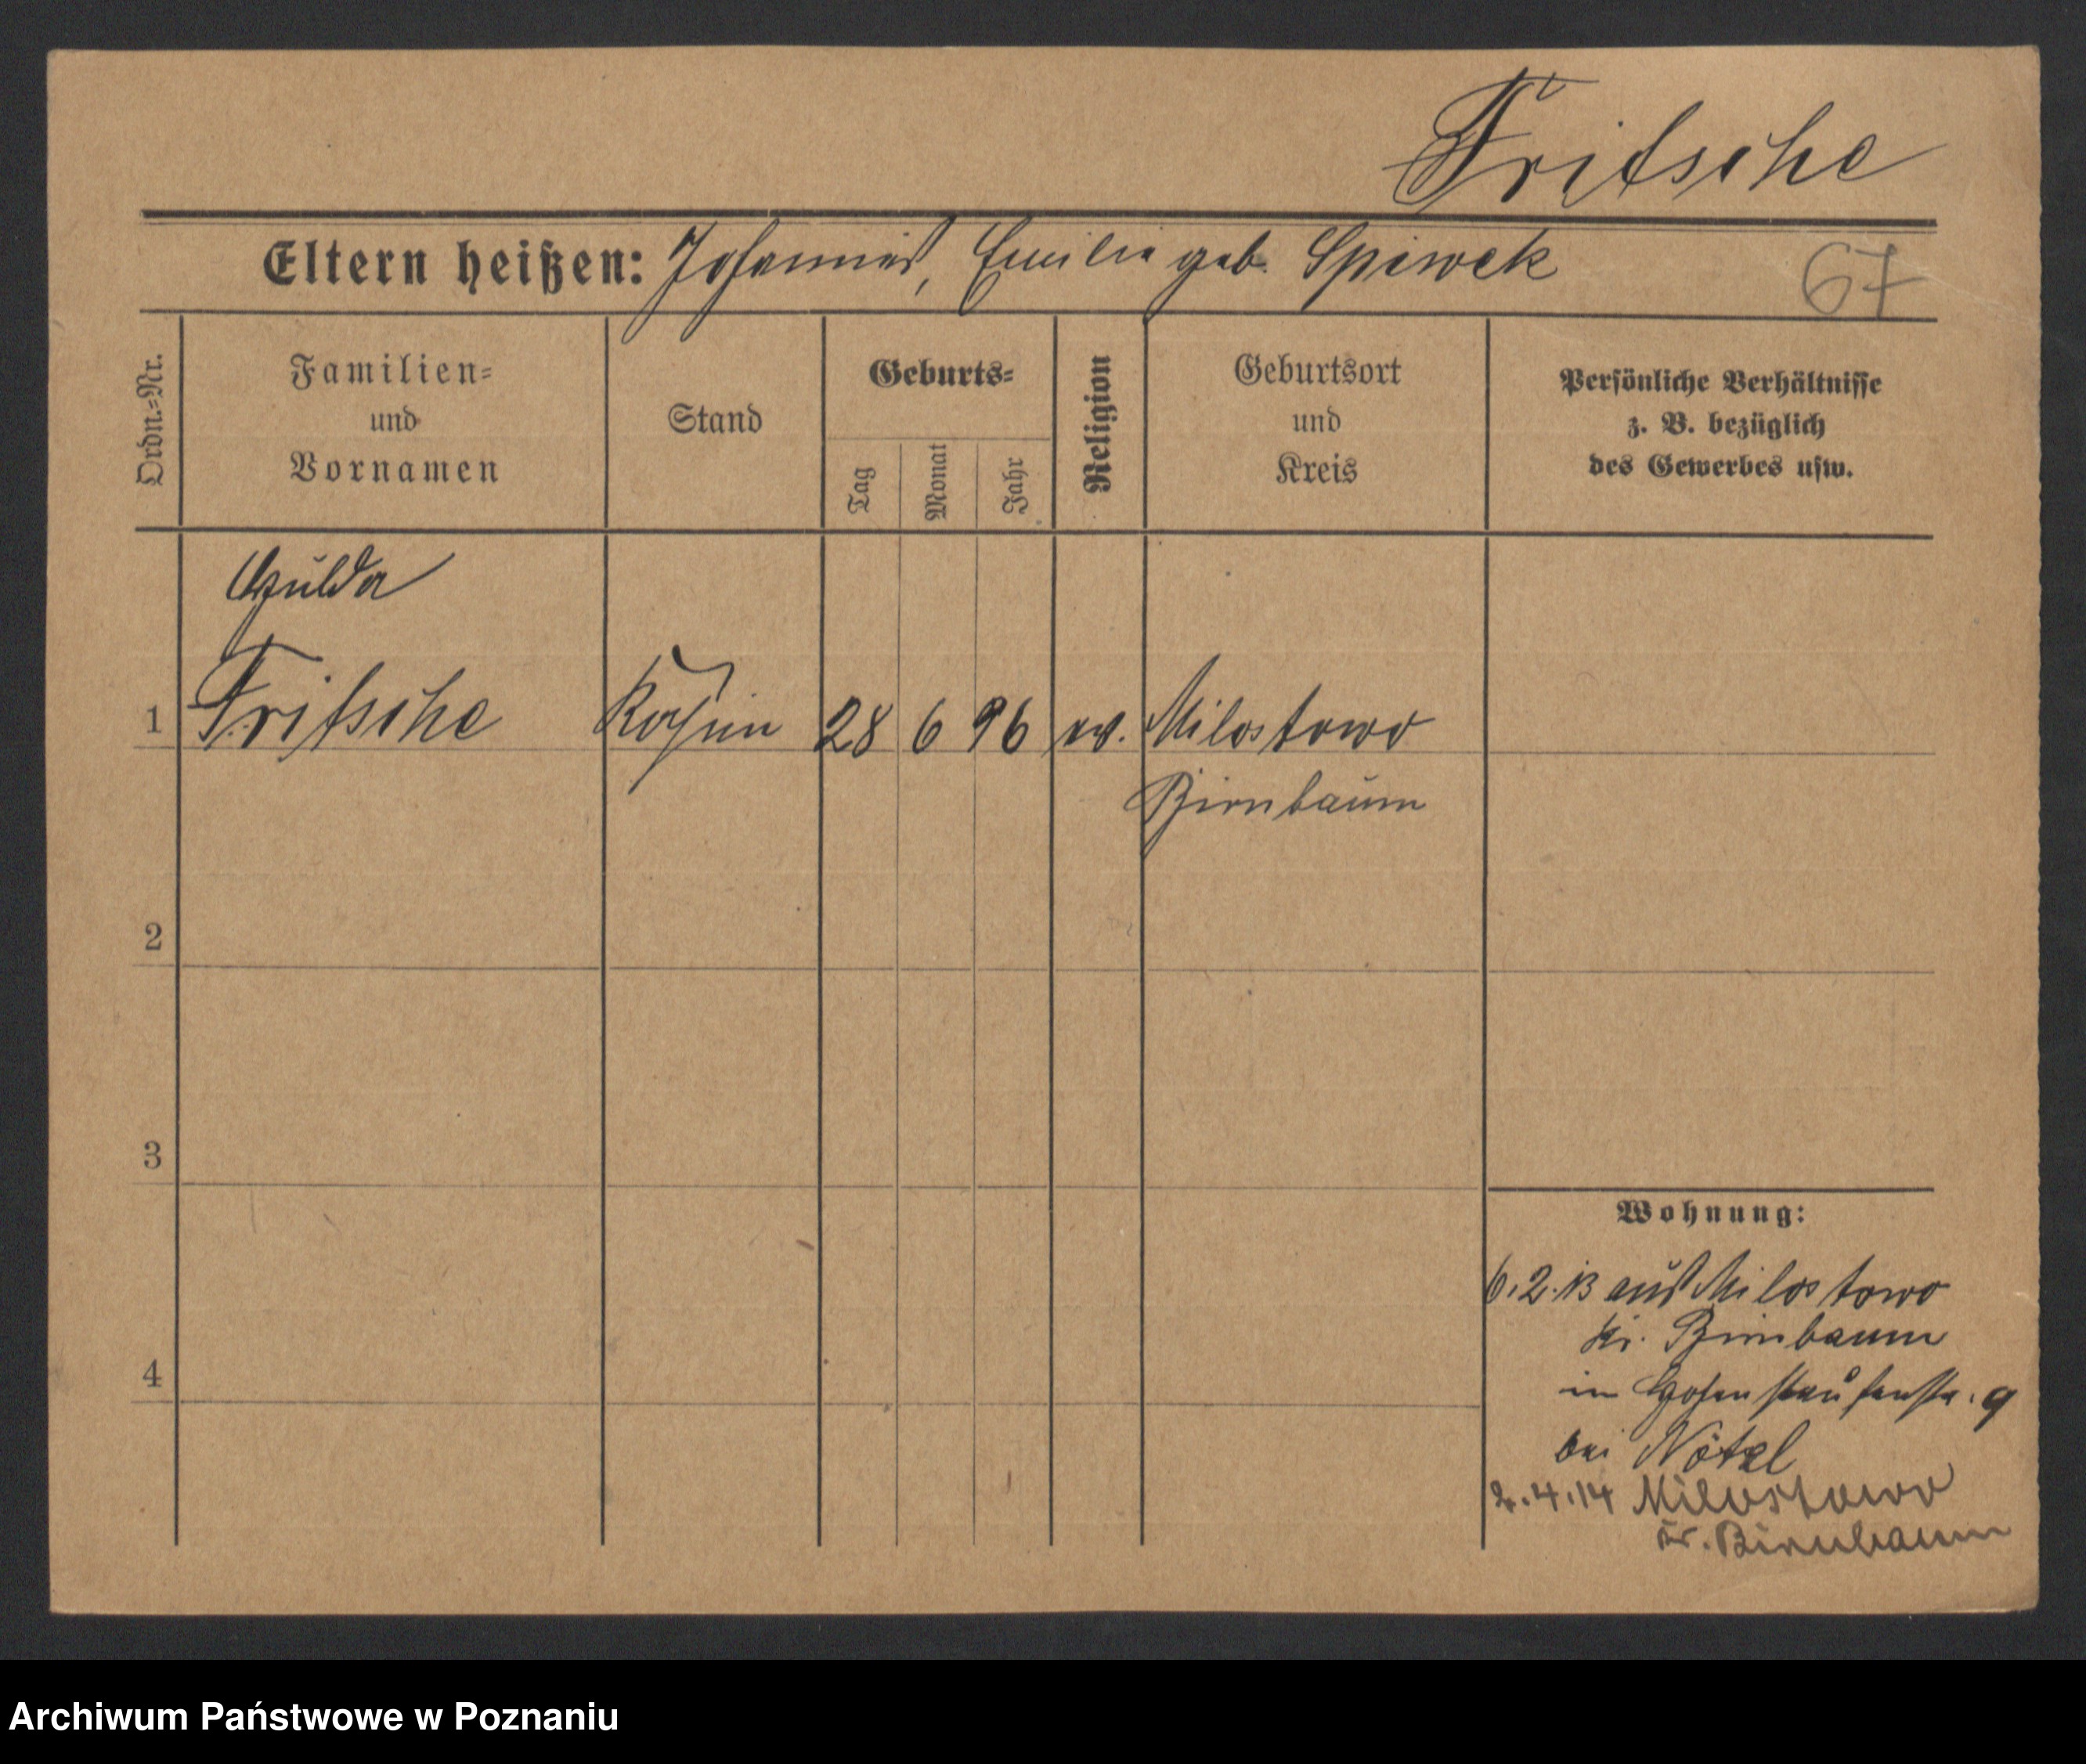 Fritsche
Eltern heißen: Johannes, Emilie geb. Spiwek
67
Ordn.=Nr.
Familien=
und
Vornamen
Stand
Geburts=
Tag
Monat
Jahr
Religion
Geburtsort
und
Kreis
Persönliche Verhältnisse
z. B. bezüglich
des Gewerbes usw.
Hulda
1 Fritsche Köchin 28 6 96 ev. Milostowo
Birnbaum
2
3
4
Wohnung:
6.2.13 aus Milostowo
Kr. Birnbaum
in Hohenstaufenstr. 9
bei Nötzel
2.4.14 Milostowo
Kr. Birnbaum
Archiwum Państwowe w Poznaniu